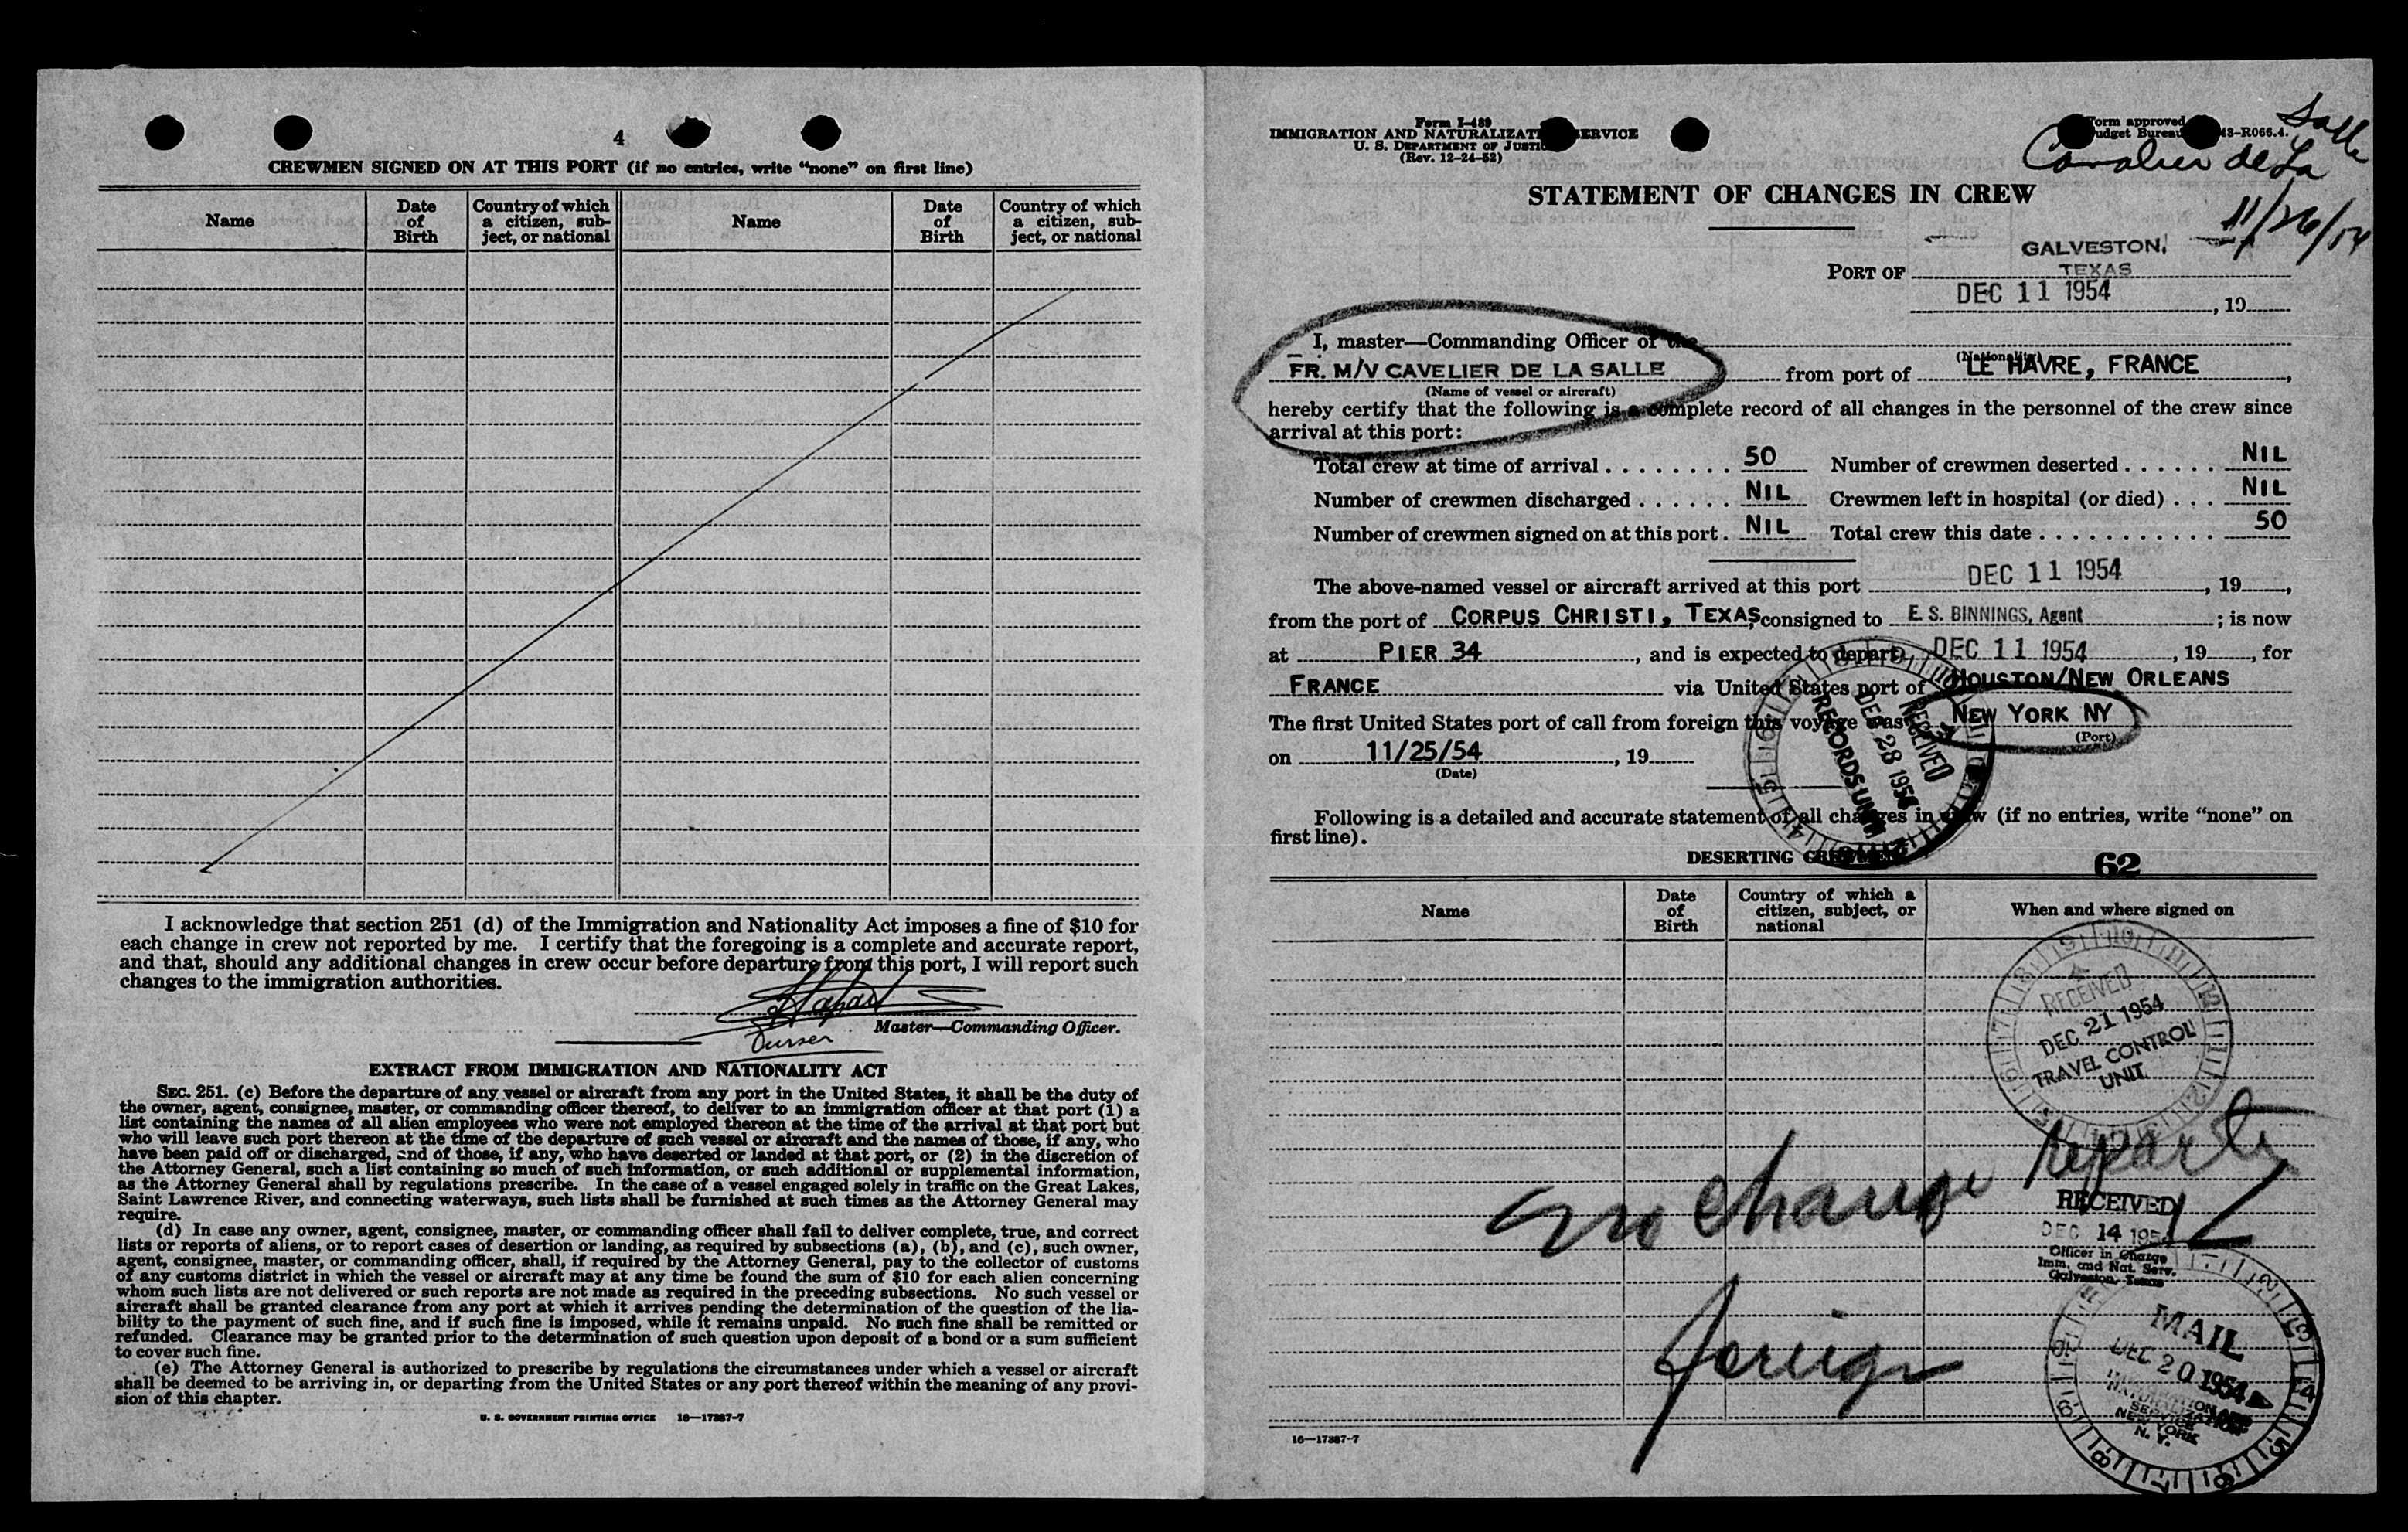 4
CREWMEN SIGNED ON AT THIS PORT (if no entries, write “none” on first line)
Name
Date of Birth
Country of which a citizen, sub-ject, or national
Name
Date of Birth
Country of which a citizen, sub-ject, or national
I acknowledge that section 251 (d) of the Immigration and Nationality Act imposes a fine of $10 for
each change in crew not reported by me. I certify that the foregoing is a complete and accurate report,
and that, should any additional changes in crew occur before departure from this port, I will report such
changes to the immigration authorities.
Master—Commanding Officer.
EXTRACT FROM IMMIGRATION AND NATIONALITY ACT
SEC. 251. (c) Before the departure of any vessel or aircraft from any port in the United States, it shall be the duty of
the owner, agent, consignee, master, or commanding officer thereof, to deliver to an immigration officer at that port (1) a
list containing the names of all alien employees who were not employed thereon at the time of the arrival at that port but
who will leave such port thereon at the time of the departure of such vessel or aircraft and the names of those, if any, who
have been paid off or discharged, and of those, if any, who have deserted or landed at that port, or (2) in the discretion of
the Attorney General, such a list containing so much of such information, or such additional or supplemental information,
as the Attorney General shall by regulations prescribe. In the case of a vessel engaged solely in traffic on the Great Lakes,
Saint Lawrence River, and connecting waterways, such lists shall be furnished at such times as the Attorney General may
require.
(d) In case any owner, agent, consignee, master, or commanding officer shall fail to deliver complete, true, and correct
lists or reports of aliens, or to report cases of desertion or landing, as required by subsections (a), (b), and (c), such owner,
agent, consignee, master, or commanding officer, shall, if required by the Attorney General, pay to the collector of customs
of any customs district in which the vessel or aircraft may at any time be found the sum of $10 for each alien concerning
whom such lists are not delivered or such reports are not made as required in the preceding subsections. No such vessel or
aircraft shall be granted clearance from any port at which it arrives pending the determination of the question of the lia-
bility to the payment of such fine, and if such fine is imposed, while it remains unpaid. No such fine shall be remitted or
refunded. Clearance may be granted prior to the determination of such question upon deposit of a bond or a sum sufficient
to cover such fine.
(e) The Attorney General is authorized to prescribe by regulations the circumstances under which a vessel or aircraft
shall be deemed to be arriving in, or departing from the United States or any port thereof within the meaning of any provi-
sion of this chapter.
U. S. GOVERNMENT PRINTING OFFICE 16—17387-7
Form I-489
IMMIGRATION AND NATURALIZATI SERVICE
U. S. DEPARTMENT OF JUSTIC
(Rev. 12-24-52)
orm approved
udget Bureau 43-R066.4.
Salle
Cavalier de La
11/26/54
STATEMENT OF CHANGES IN CREW
GALVESTON,
PORT OF TEXAS
DEC 11 1954, 19
I, master—Commanding Officer of the
(Nationality)
FR. M/V CAVELIER DE LA SALLE from port of LE HAVRE, FRANCE,
(Name of vessel or aircraft)
hereby certify that the following is a complete record of all changes in the personnel of the crew since
arrival at this port:
Total crew at time of arrival 50 Number of crewmen deserted NIL
Number of crewmen discharged NIL Crewmen left in hospital (or died) NIL
Number of crewmen signed on at this port NIL Total crew this date 50
The above-named vessel or aircraft arrived at this port DEC 11 1954, 19,
from the port of CORPUS CHRISTI, TEXAS consigned to E. S. BINNINGS, Agent; is now
at PIER 34, and is expected to depart DEC 11 1954, 19, for
FRANCE via United States port of HOUSTON/NEW ORLEANS
The first United States port of call from foreign this voyage was NEW YORK NY
(Port)
on 11/25/54, 19
(Date)
RECEIVED
DEC 28 1954
RECORDS UNIT
Following is a detailed and accurate statement of all changes in crew (if no entries, write “none” on
first line).
DESERTING CREWMEN
62
Name
Date of Birth
Country of which a citizen, subject, or national
When and where signed on
RECEIVED
DEC 21 1954
TRAVEL CONTROL
UNIT
no change reports
RECEIVED
DEC 14 1954
Officer in Charge
Imm. and Nat. Serv.
Galveston, Texas
foreign
MAIL
DEC 20 1954
SERVICE
NEW YORK
N. Y.
16—17387-7